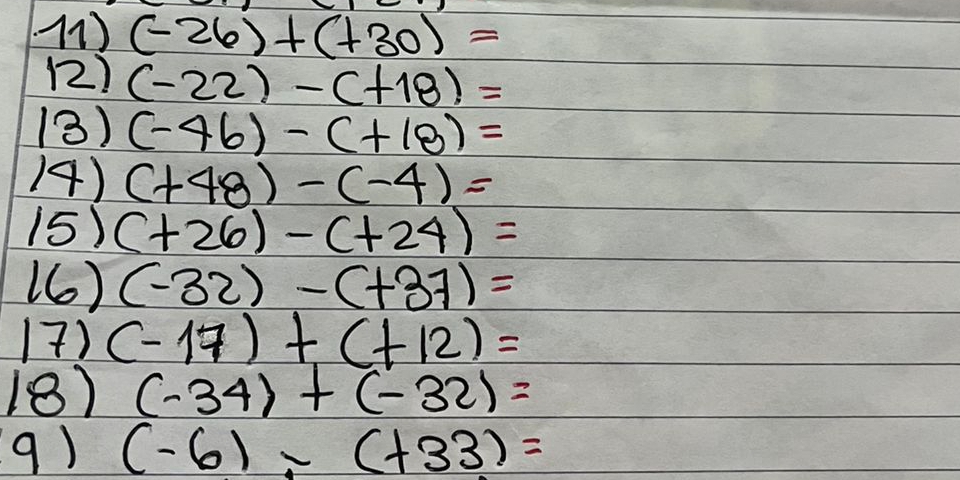 11) (-26)+(+30) =
12) (-22) -(+18) =
13) (-46) - (+18) =
14) (+48) -(-4) =
15) (+26) -(+24) =
16) (-32) -(+37) =
17) (-17) + (+12) =
18) (-34) + (-32) =
9) (-6) - (+33) =